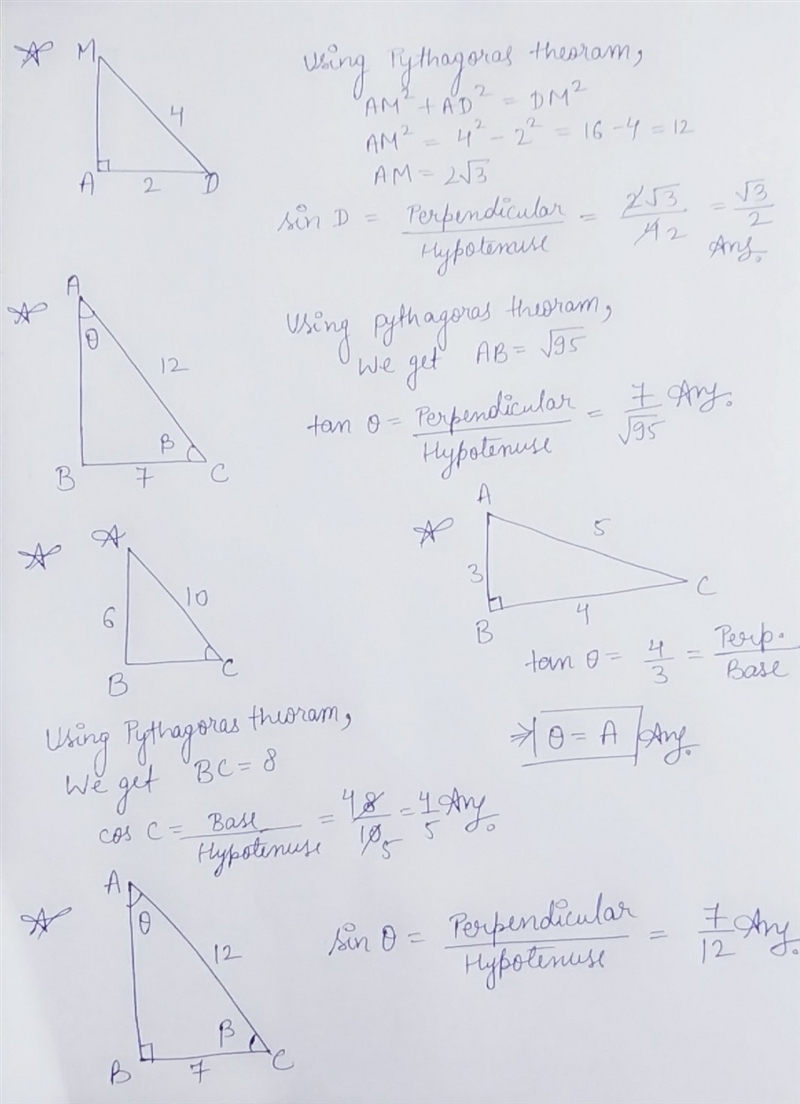 M
4
A 2 D
Using Pythagoras theoram,
AM² + AD² = DM²
AM² = 4² - 2² = 16 - 4 = 12
AM = 2√3
sin D = Perpendicular / Hypotenuse = 2√3 / 4 2 = √3 / 2
Ans.
A
θ
12
β
B 7 C
Using pythagoras theoram,
We get AB = √95
tan θ = Perpendicular / Hypotenuse = 7 / √95 Ans.
A
6 10
B C
Using Pythagoras theoram,
We get BC = 8
cos C = Base / Hypotenuse = 4 8 / 10 5 = 4 / 5 Ans.
A
5
3
B 4 C
tan θ = 4 / 3 = Perp. / Base
⇒ θ = A Ans.
A
θ
12
β
B 7 C
sin θ = Perpendicular / Hypotenuse = 7 / 12 Ans.